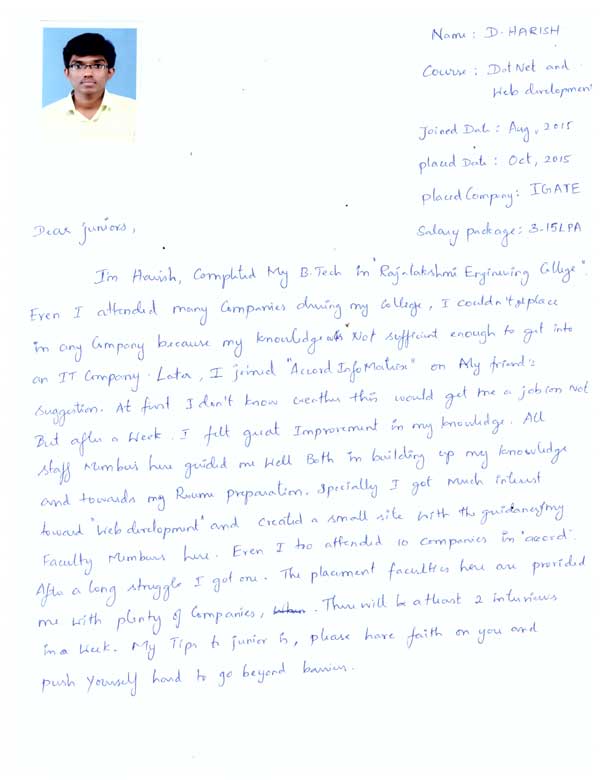 Name : D. HARISH
Course : Dot Net and
Web development
Joined Date : Aug, 2015
placed Date : Oct, 2015
placed Company : IGATE
Salary package : 3.15LPA
Dear juniors,
I'm Harish, Completed My B.Tech in "Rajalakshmi Engineering College".
Even I attended many Companies during my College, I couldn't place
in any Company because my knowledge was Not sufficient enough to get into
an IT Company. Later, I joined "Accord Info Matrix" on My friend's
suggestion. At first I don't know weather this would get me a job or Not
But after a Week. I felt great Improvement in my knowledge. All
staff Members here guided me Well Both in building up my knowledge
and towards my Resume preparation. Specially I got Much interest
toward "Web development" and Created a small site with the guidance of my
Faculty Members here. Even I too attended 10 Companies in "accord".
After a long struggle I got one. The placement faculties here are provided
me with plenty of Companies, . There will be atleast 2 interviews
in a Week. My Tips to junior is, please have faith on you and
push yourself hard to go beyond barriers.